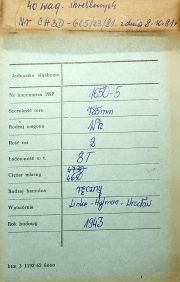 40 wag. skreślonych
Nr CH3D-605/43/81. z dnia 8.10.81r
Jednostka służbowa
Nr inwentarza PKP 1650-5
Szerokość toru 785mm
Rodzaj wagonu Wz
Ilość osi 2
Ładowność w t. 8T
Ciężar własny 4730
4650
Rodzaj hamulca ręczny
Wytwórnia Linke-Hofman, Wrocław
Rok budowy 1943